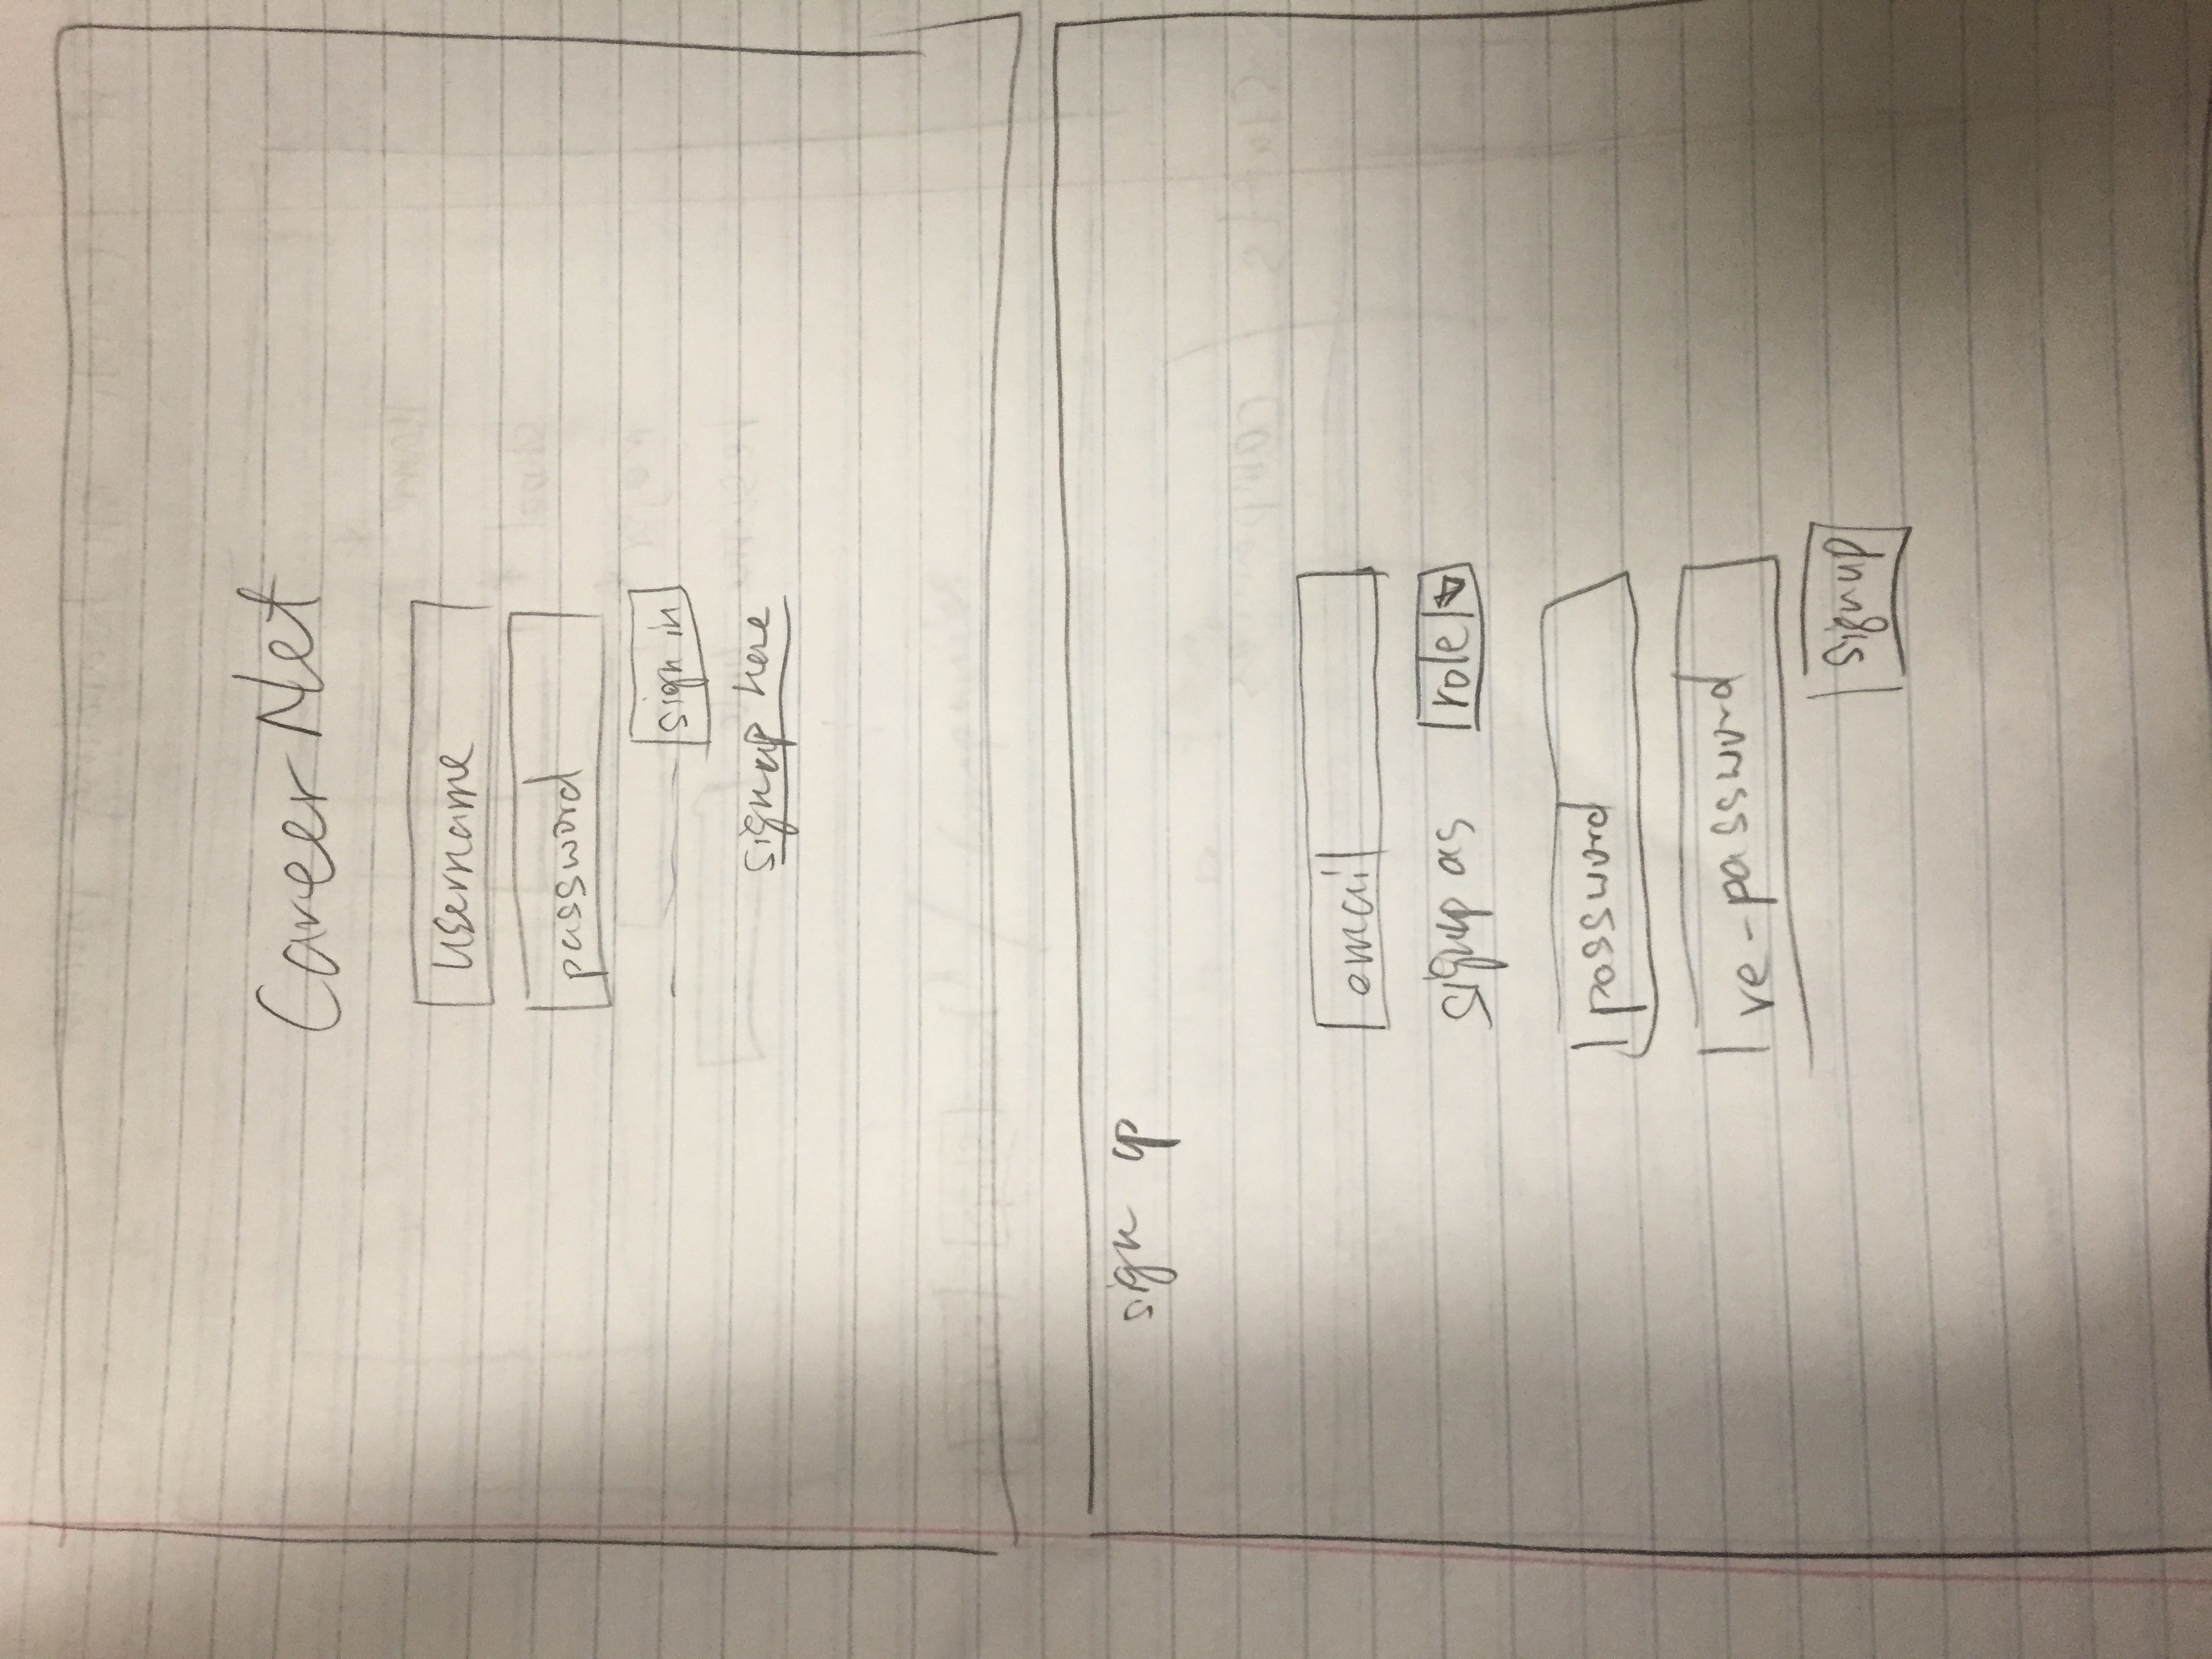 Career Net
username
password
sign in
signup here
sign up
email
signup as role
password
re-password
signup